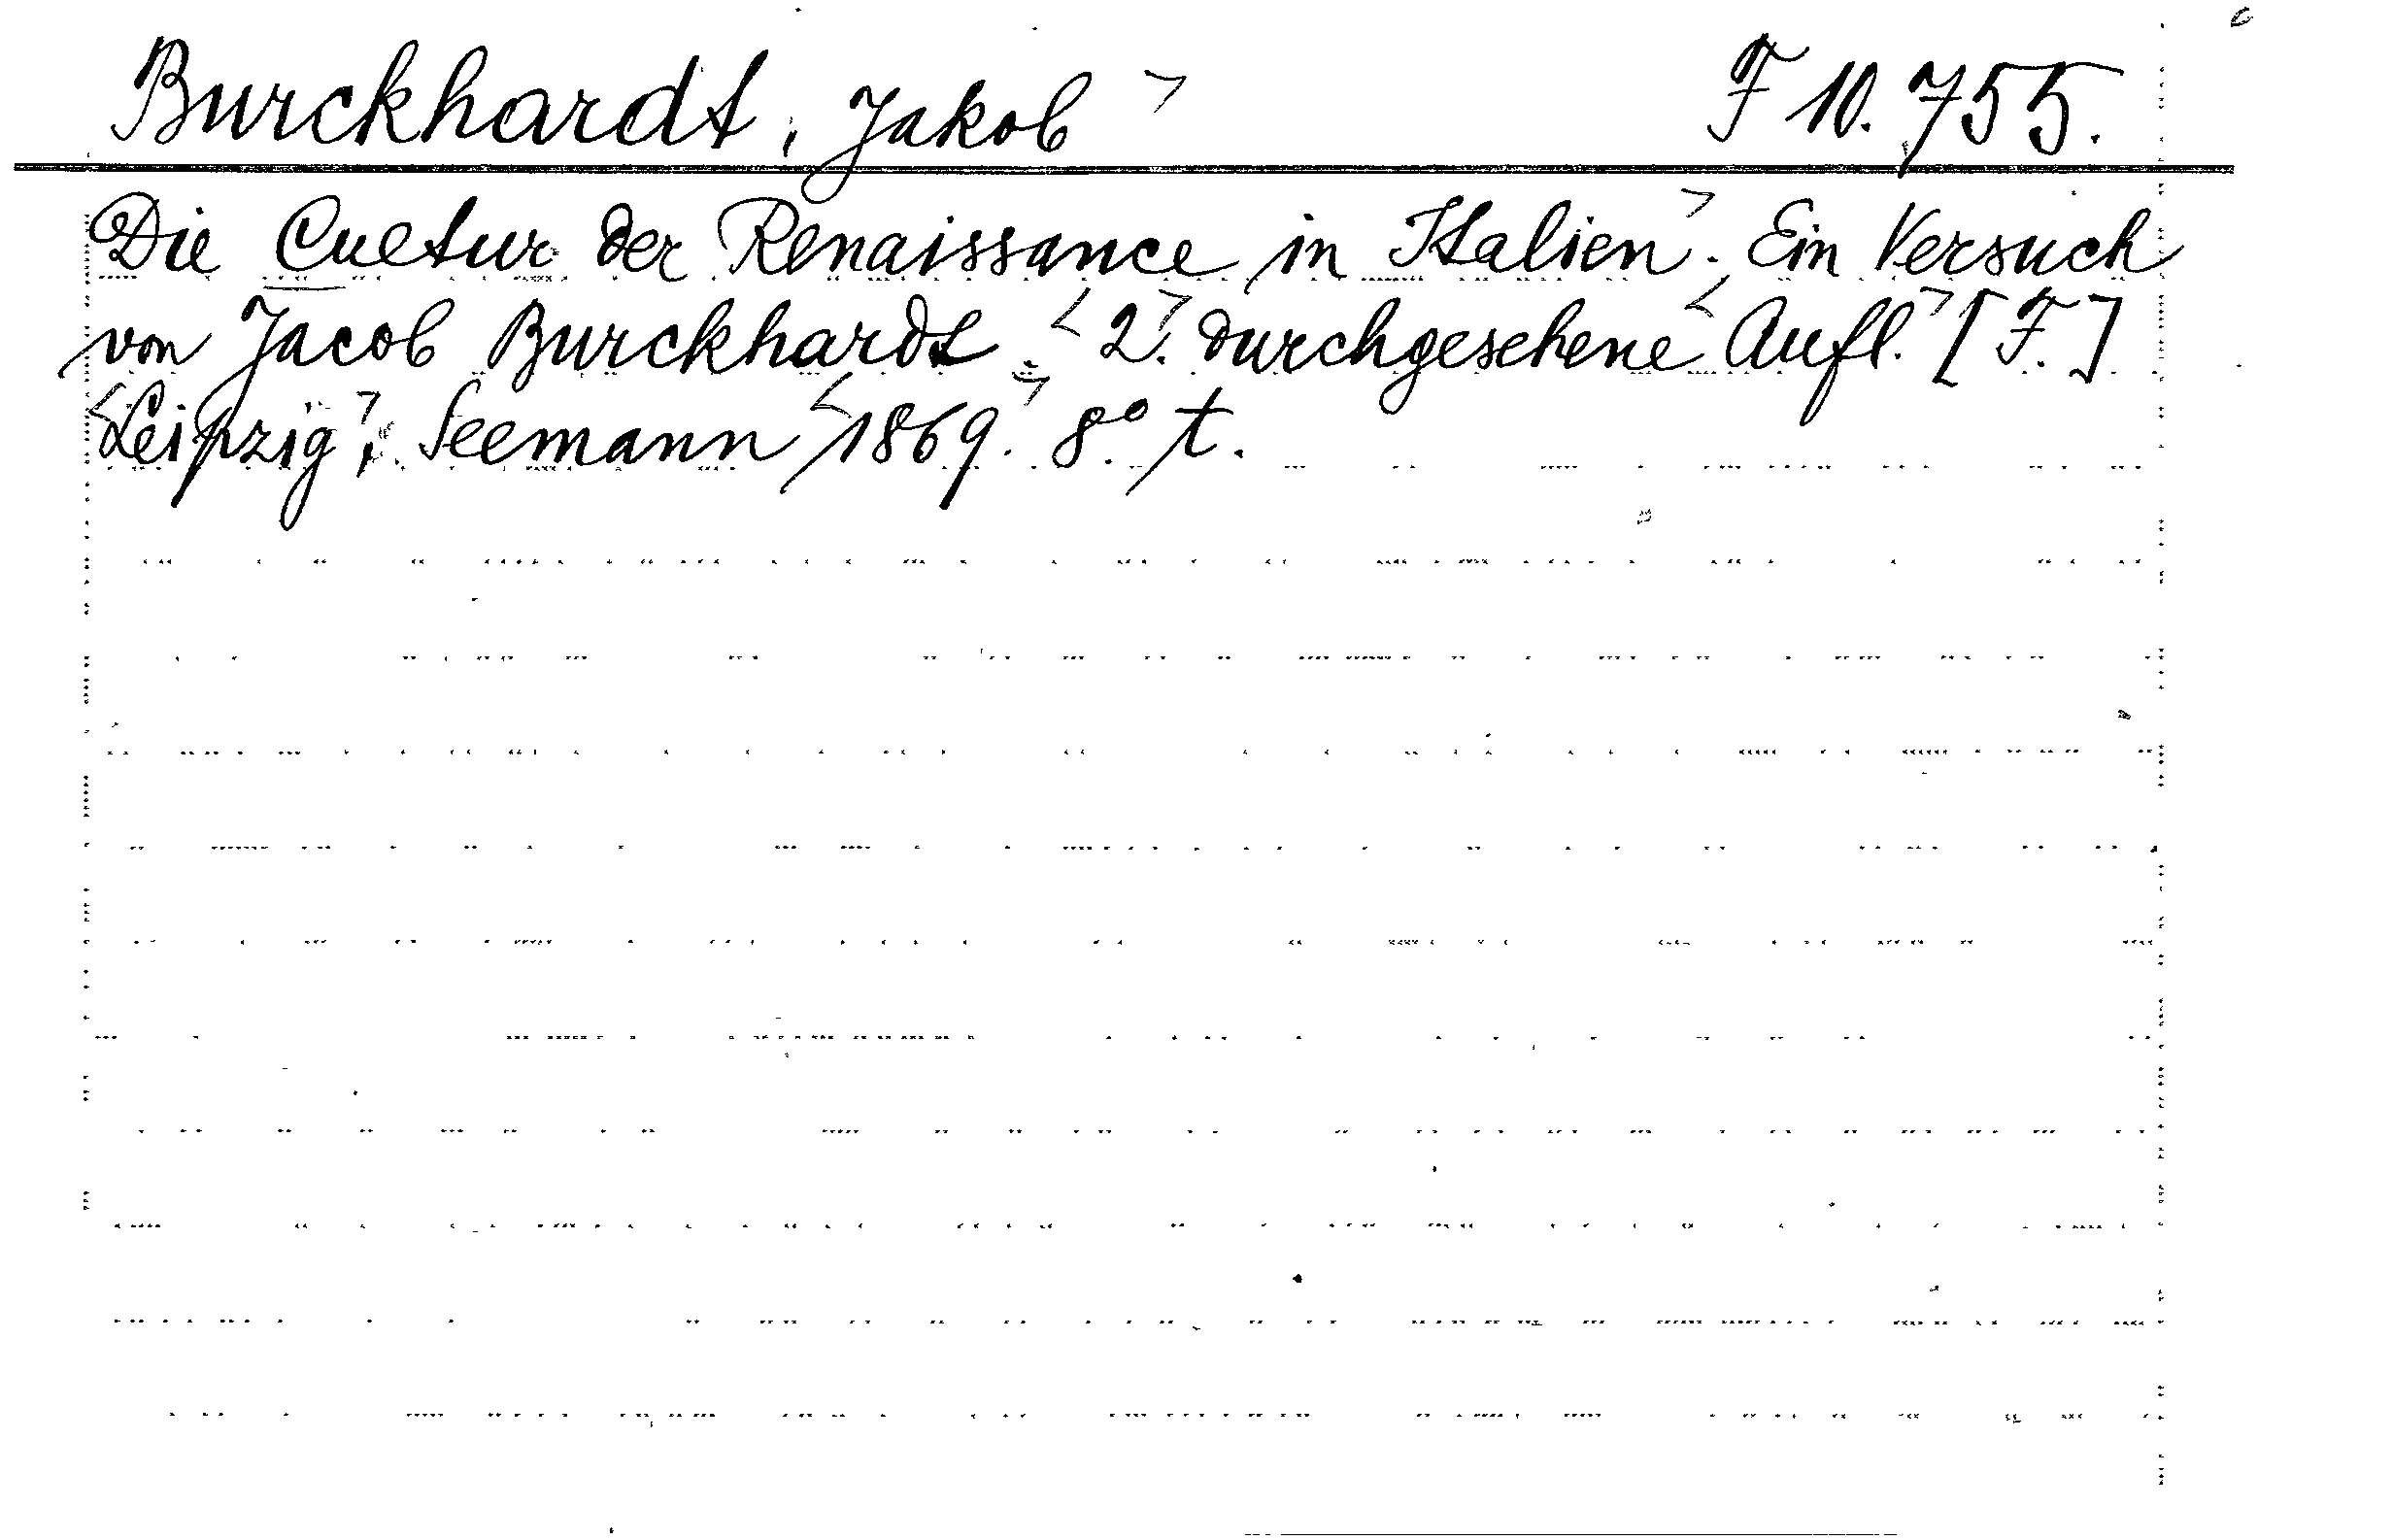 Burckhardt, Jakob F 10.755.
Die Cultur der Renaissance in Italien. Ein Versuch
von Jacob Burckhardt. 2. durchgesehene Aufl. [F.]
Leipzig, Seemann 1869. 8° t.